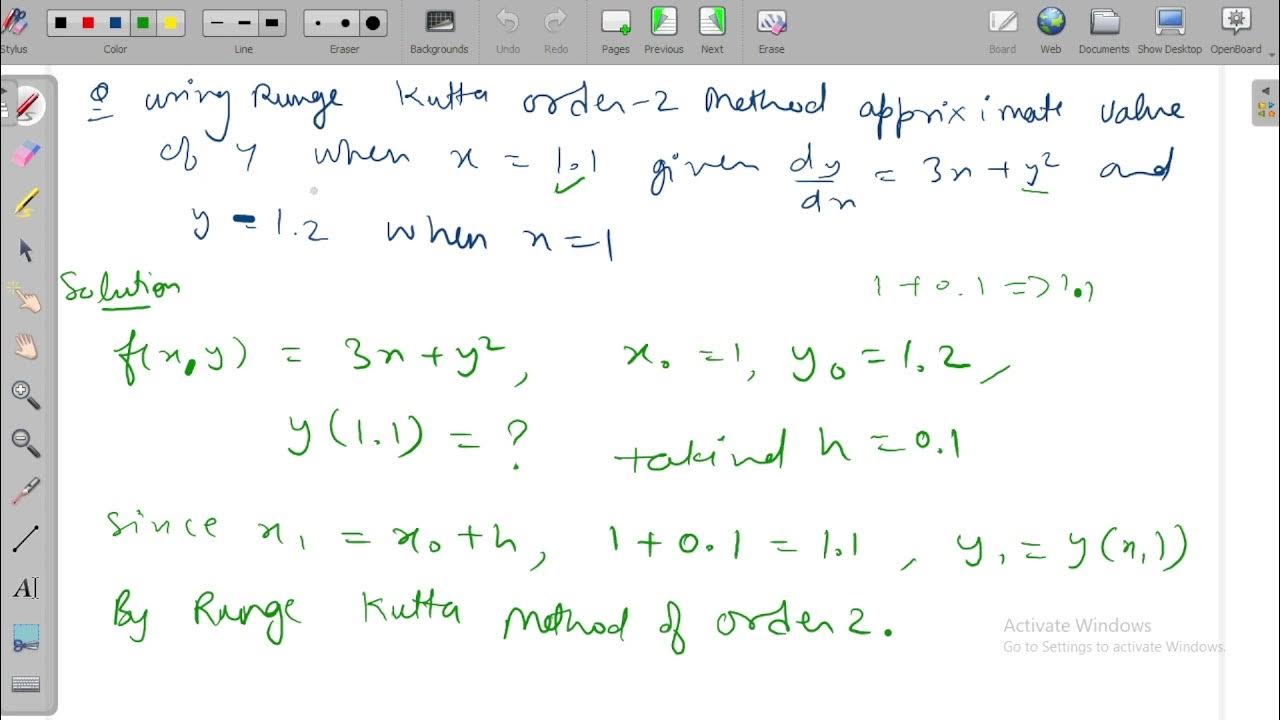 Stylus
Color
Line
Eraser
Backgrounds
Undo
Redo
Pages
Previous
Next
Erase
Board
Web
Documents
Show Desktop
OpenBoard
Q using Runge Kutta order-2 Method appriximate value
of y when x = 1.1 given dy/dn = 3n + y² and
y = 1.2 when n = 1
Solution
1 + 0.1 => 1.1
f(x,y) = 3n + y², x₀ = 1, y₀ = 1.2,
y(1.1) = ? takind h = 0.1
Since x₁ = x₀ + h, 1 + 0.1 = 1.1, y₁ = y(x₁)
By Runge Kutta Method of order 2.
A
Activate Windows
Go to Settings to activate Windows.